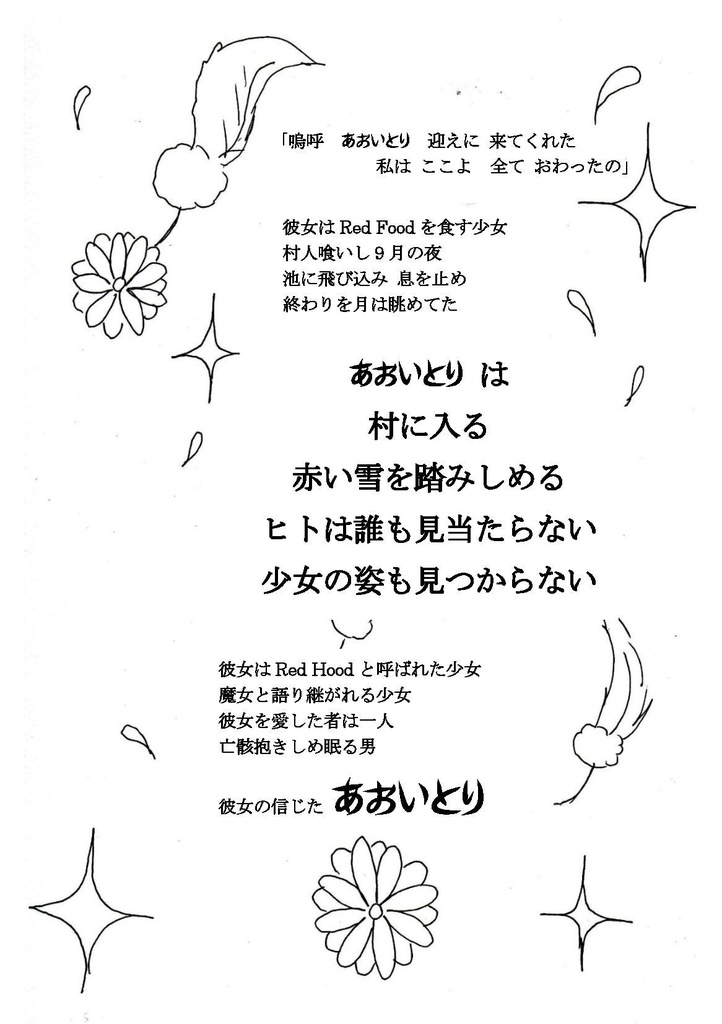 「嗚呼　あおいとり　迎えに 来てくれた
私は ここよ　全て おわったの」
彼女は Red Food を食す少女
村人喰いし９月の夜
池に飛び込み 息を止め
終わりを月は眺めてた
あおいとり は
村に入る
赤い雪を踏みしめる
ヒトは誰も見当たらない
少女の姿も見つからない
彼女は Red Hood と呼ばれた少女
魔女と語り継がれる少女
彼女を愛した者は一人
亡骸抱きしめ眠る男
彼女の信じた あおいとり